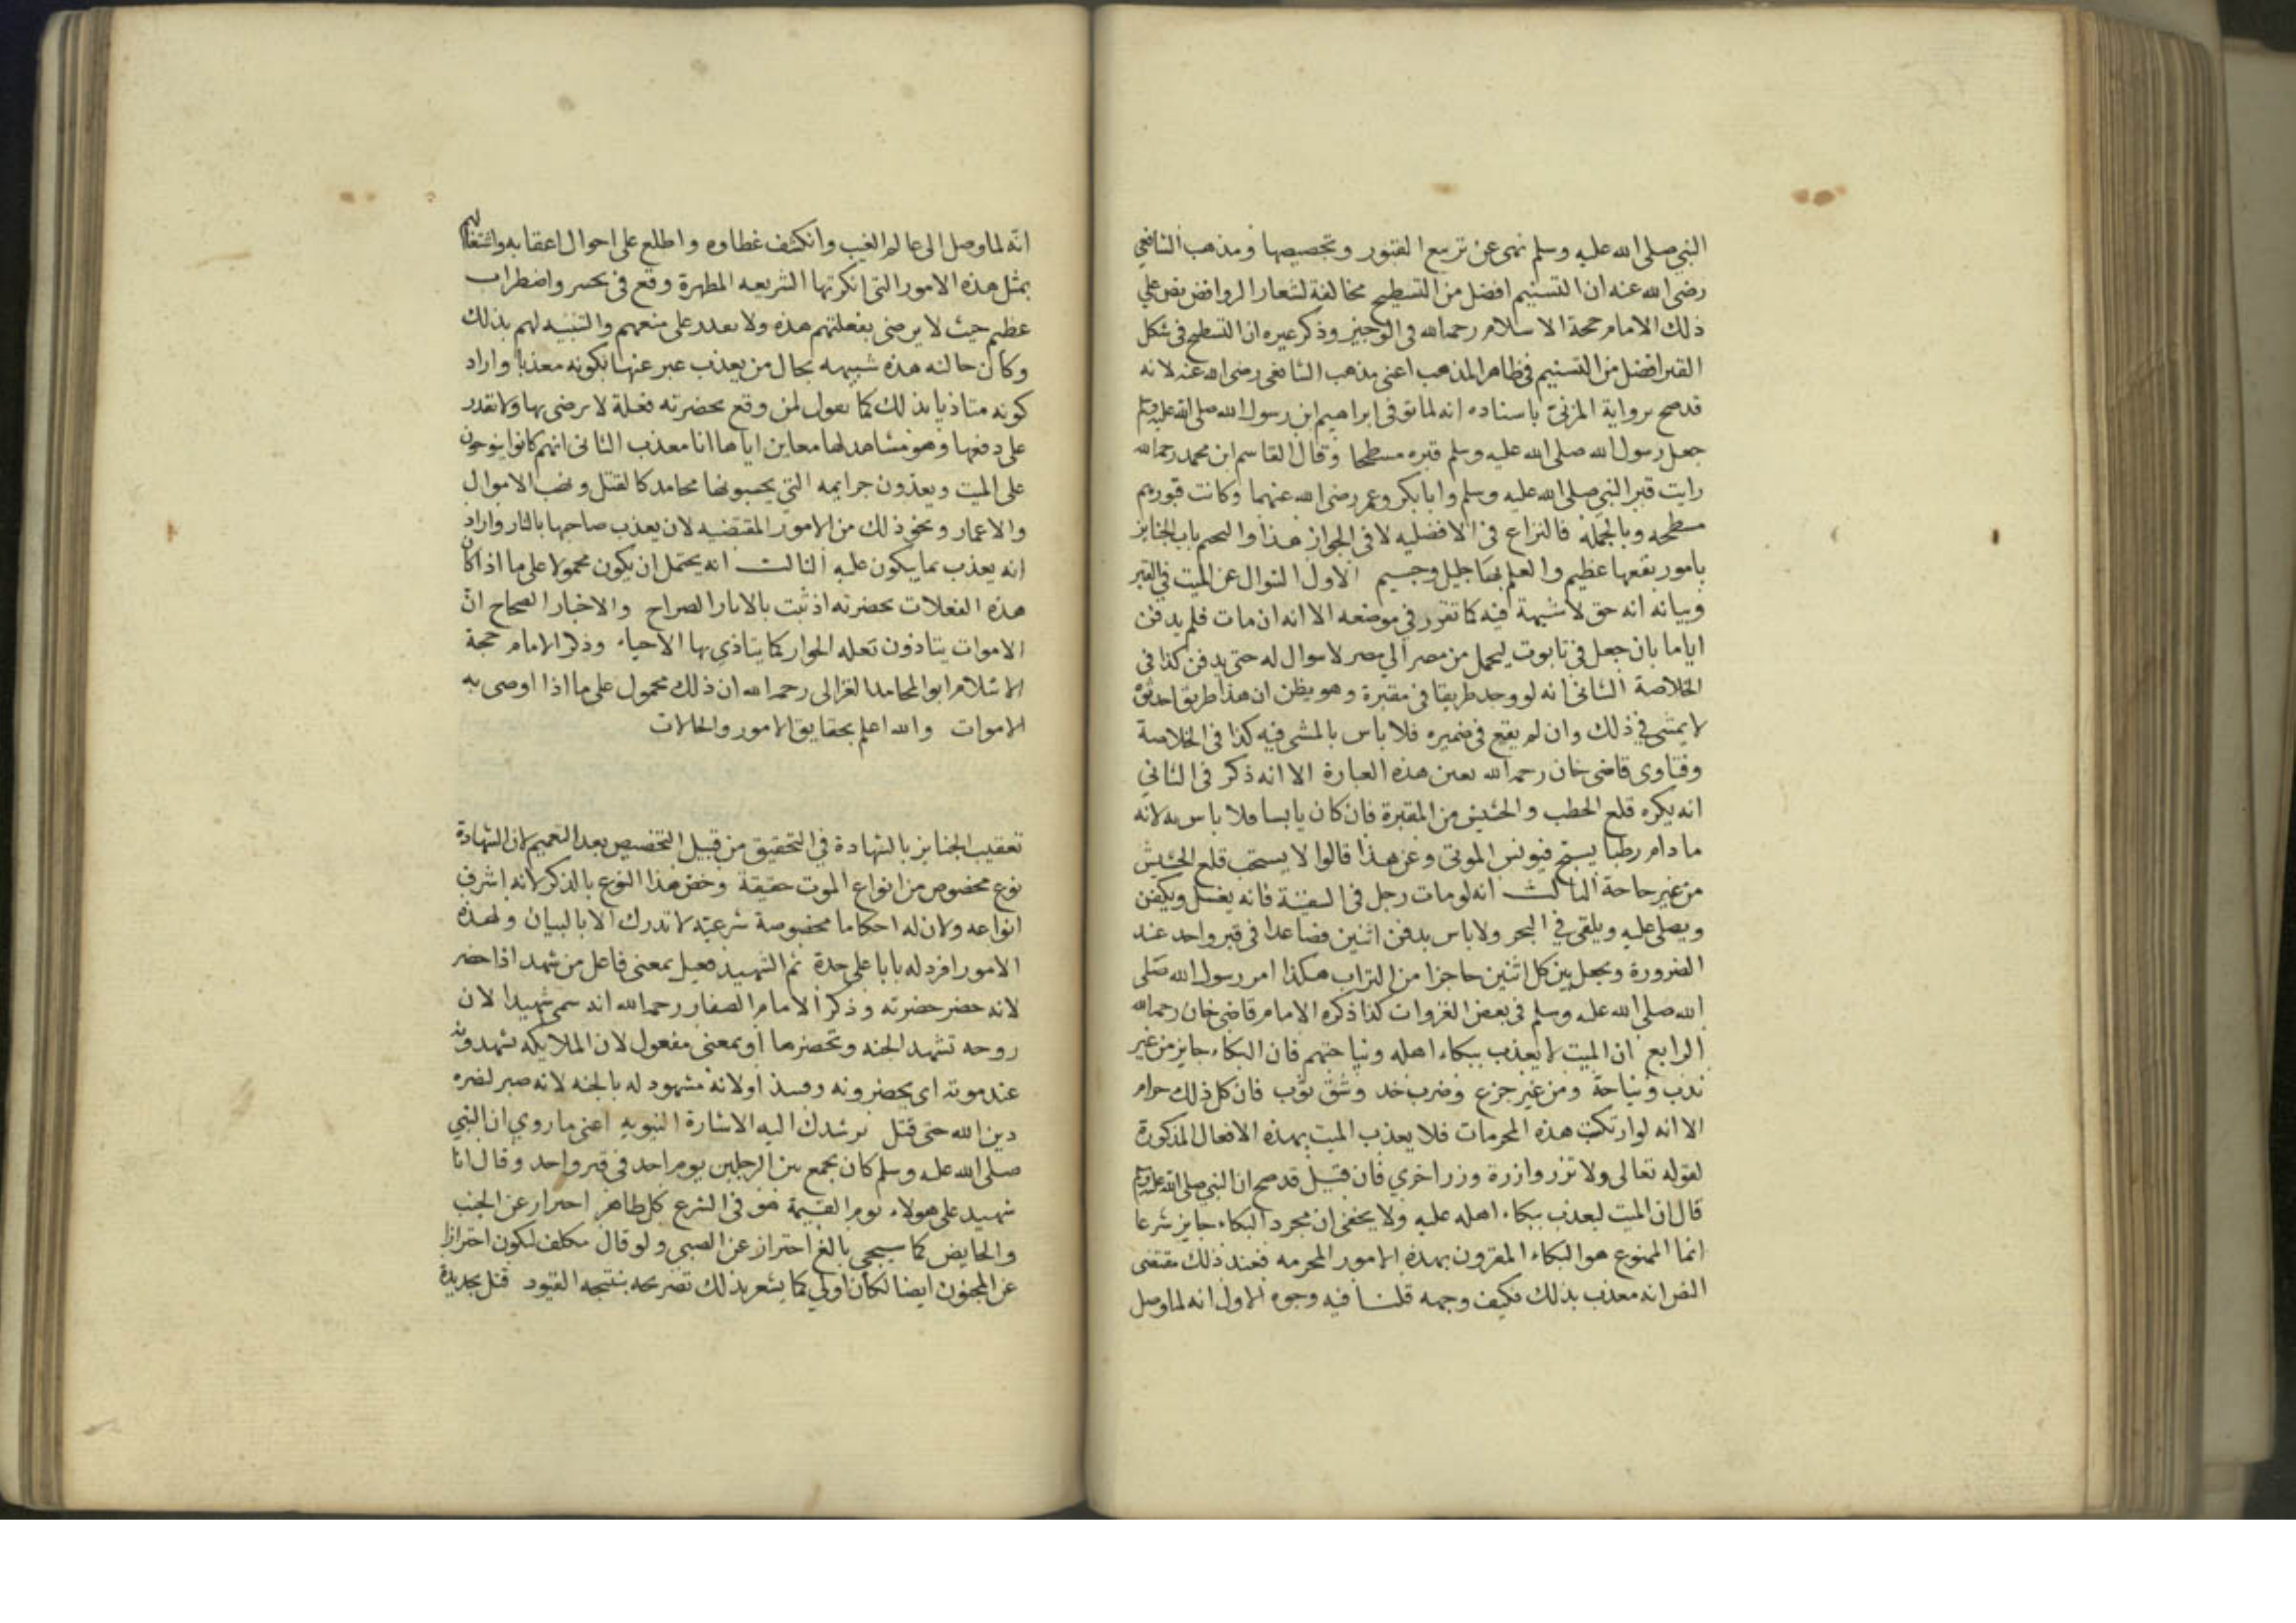 النبي صلى الله عليه وسلم نهى عن تربيع القبور وتجصيصها ومذهب الشافعي
رضى الله عنه ان التسنيم افضل من التسطيح مخالفة لشعار الروافض نص على
ذلك الامام حجة الاسلام رحمه الله في الوجيز وذكر غيره ان التسطيح في شكل
القبر افضل من التسنيم في ظاهر المذهب اعنى مذهب الشافعى رضى الله عنه لانه
قد صح برواية المزنى باسناده انه لما توفى ابراهيم ابن رسول الله صلى الله عليه وسلم
جعل رسول الله صلى الله عليه وسلم قبره مسطحا وقال القاسم ابن محمد رحمه الله
رايت قبر النبي صلى الله عليه وسلم وابا بكر وعمر رضى الله عنهما وكانت قبورهم
مسطحه وبالجملة فالنزاع فى الافضليه لا فى الجواز هذا باب الجنايز
بامور نفعها عظيم والعلم بها جليل وجسيم الاول السوال عن الميت في القبر
وبيانه انه حق لا شبهة فيه كما تقرر في موضعه الا انه ان مات فلم يدفن
اياما بان جعل في تابوت ليحمل من مصر الي مصر لا سوال له حتى يدفن كذا فى
الخلاصة الثانى انه لو وجد طريقا فى مقبرة وهو يظن ان هذا طريق احدثوه
لا يمشى في ذلك وان لم يقع فى ضميره فلا باس بالمشى فيه كذا فى الخلاصة
وفتاوى قاضى خان رحمه الله بعين هذه العبارة الا انه ذكر فى الثانى
انه يكره قلع الحطب والحشيش من المقبرة فان كان يابسا فلا باس به لانه
ما دام رطبا يسبح فيونس الموتى وعن هذا قالوا لا يستحب قلع الحشيش
من غير حاجة الثالث انه لو مات رجل فى السفينة فانه يغسل ويكفن
ويصلى عليه ويلقى في البحر ولا باس بدفن اثنين فصاعدا فى قبر واحد عند
الضرورة ويجعل بين كل اثنين حاجزا من التراب هكذا امر رسول الله صلى
الله صلى الله عليه وسلم فى بعض الغزوات كذا ذكره الامام قاضى خان رحمه الله
الرابع ان الميت لا يعذب ببكاء اهله ونياحتهم فان البكاء جايز من غير
ندب ونياحة ومن غير جزع وضرب خد وشق ثوب فان كل ذلك حرام
الا انه لو ارتكبت هذه المحرمات فلا يعذب الميت بهذه الافعال المذكورة
لقوله تعالى ولا تزر وازرة وزر اخري فان قيل قد صح ان النبي صلى الله عليه وسلم
قال ان الميت ليعذب ببكاء اهله عليه ولا يخفى ان مجرد البكاء جايز شرعا
انما الممنوع هو البكاء المقرون بهذه الامور المحرمه فعند ذلك مقتضى
النص انه معذب بذلك فكيف وجهه قلنا فيه وجوه الاول انه لما وصل
انه لما وصل الى عالم الغيب وانكشف غطاوه واطلع على احوال اعقابه واشتغالهم
بمثل هذه الامور التى انكرتها الشريعه المطهرة وقع فى تحسر واضطراب
عظيم حيث لا يرضى بفعلتهم هذه ولا يقدر على منعهم والتنبيه لهم بذلك
وكان حالته هذه شبيهه بحال من يعذب عبر عنها بكونه معذبا واراد
كونه متاذيا بذلك كما يقول لمن وقع بحضرته فعلة لا يرضى بها ولا يقدر
على دفعها وهو مشاهد لها معاين اياها انا معذب الثانى انهم كانوا ينوحون
على الميت ويعدون جرايمه التي يحسبونها محامد كالقتل ونهب الاموال
والاعمار ونحو ذلك من الامور المقتضيه لان يعذب صاحبها بالنار واراد
انه يعذب بما يبكون عليه الثالث انه يحتمل ان يكون محمولا على ما اذا كان
هذه الفعلات بحضرته اذ ثبت بالاثار الصراح والاخبار الصحاح ان
الاموات يتاذون الجوار كما يتاذى بها الاحياء وذكر الامام حجة
الاسلام ابو المحامد الغزالى رحمه الله ان ذلك محمول على ما اذا اوصى به
الاموات والله اعلم بحقايق الامور والحالات
تعقيب الجنايز بالشهادة في التحقيق من قبيل التخصيص بعد التعميم لان الشهادة
نوع مخصوص من انواع الموت حقيقة وخص هذا النوع بالذكر لانه اشرف
انواعه ولان له احكاما مخصوصة شرعيّة لا تدرك الا بالبيان ولهذه
الامور افرد له بابا على حدة ثم الشهيد فعيل بمعنى فاعل من شهد اذا حضر
لانه حضر حضرته وذكر الامام الصفار رحمه الله انه سمى شهيدا لان
روحه تشهد الجنه وتحضرها او بمعنى مفعول لان الملايكه يشهدونه
عند موته اى يحضرونه او لانه مشهود له بالجنه لانه صبر لنصره
دين الله حتى قتل يرشدك اليه الاشارة النبويه اعنى ما روي ان النبي
صلى الله عليه وسلم كان يجمع بين الرجلين يوم احد فى قبر واحد وقال انا
شهيد على هولاء يوم القيمة هو فى الشرع كل طاهر احتراز عن الجنب
والحايض كما سيجي بالغ احتراز عن الصبى ولو قال مكلف ليكون احترازا
عن المجنون ايضا لكان اولي كما يشعر بذلك تصريحه بنتيجه القيود قتل بحديدة